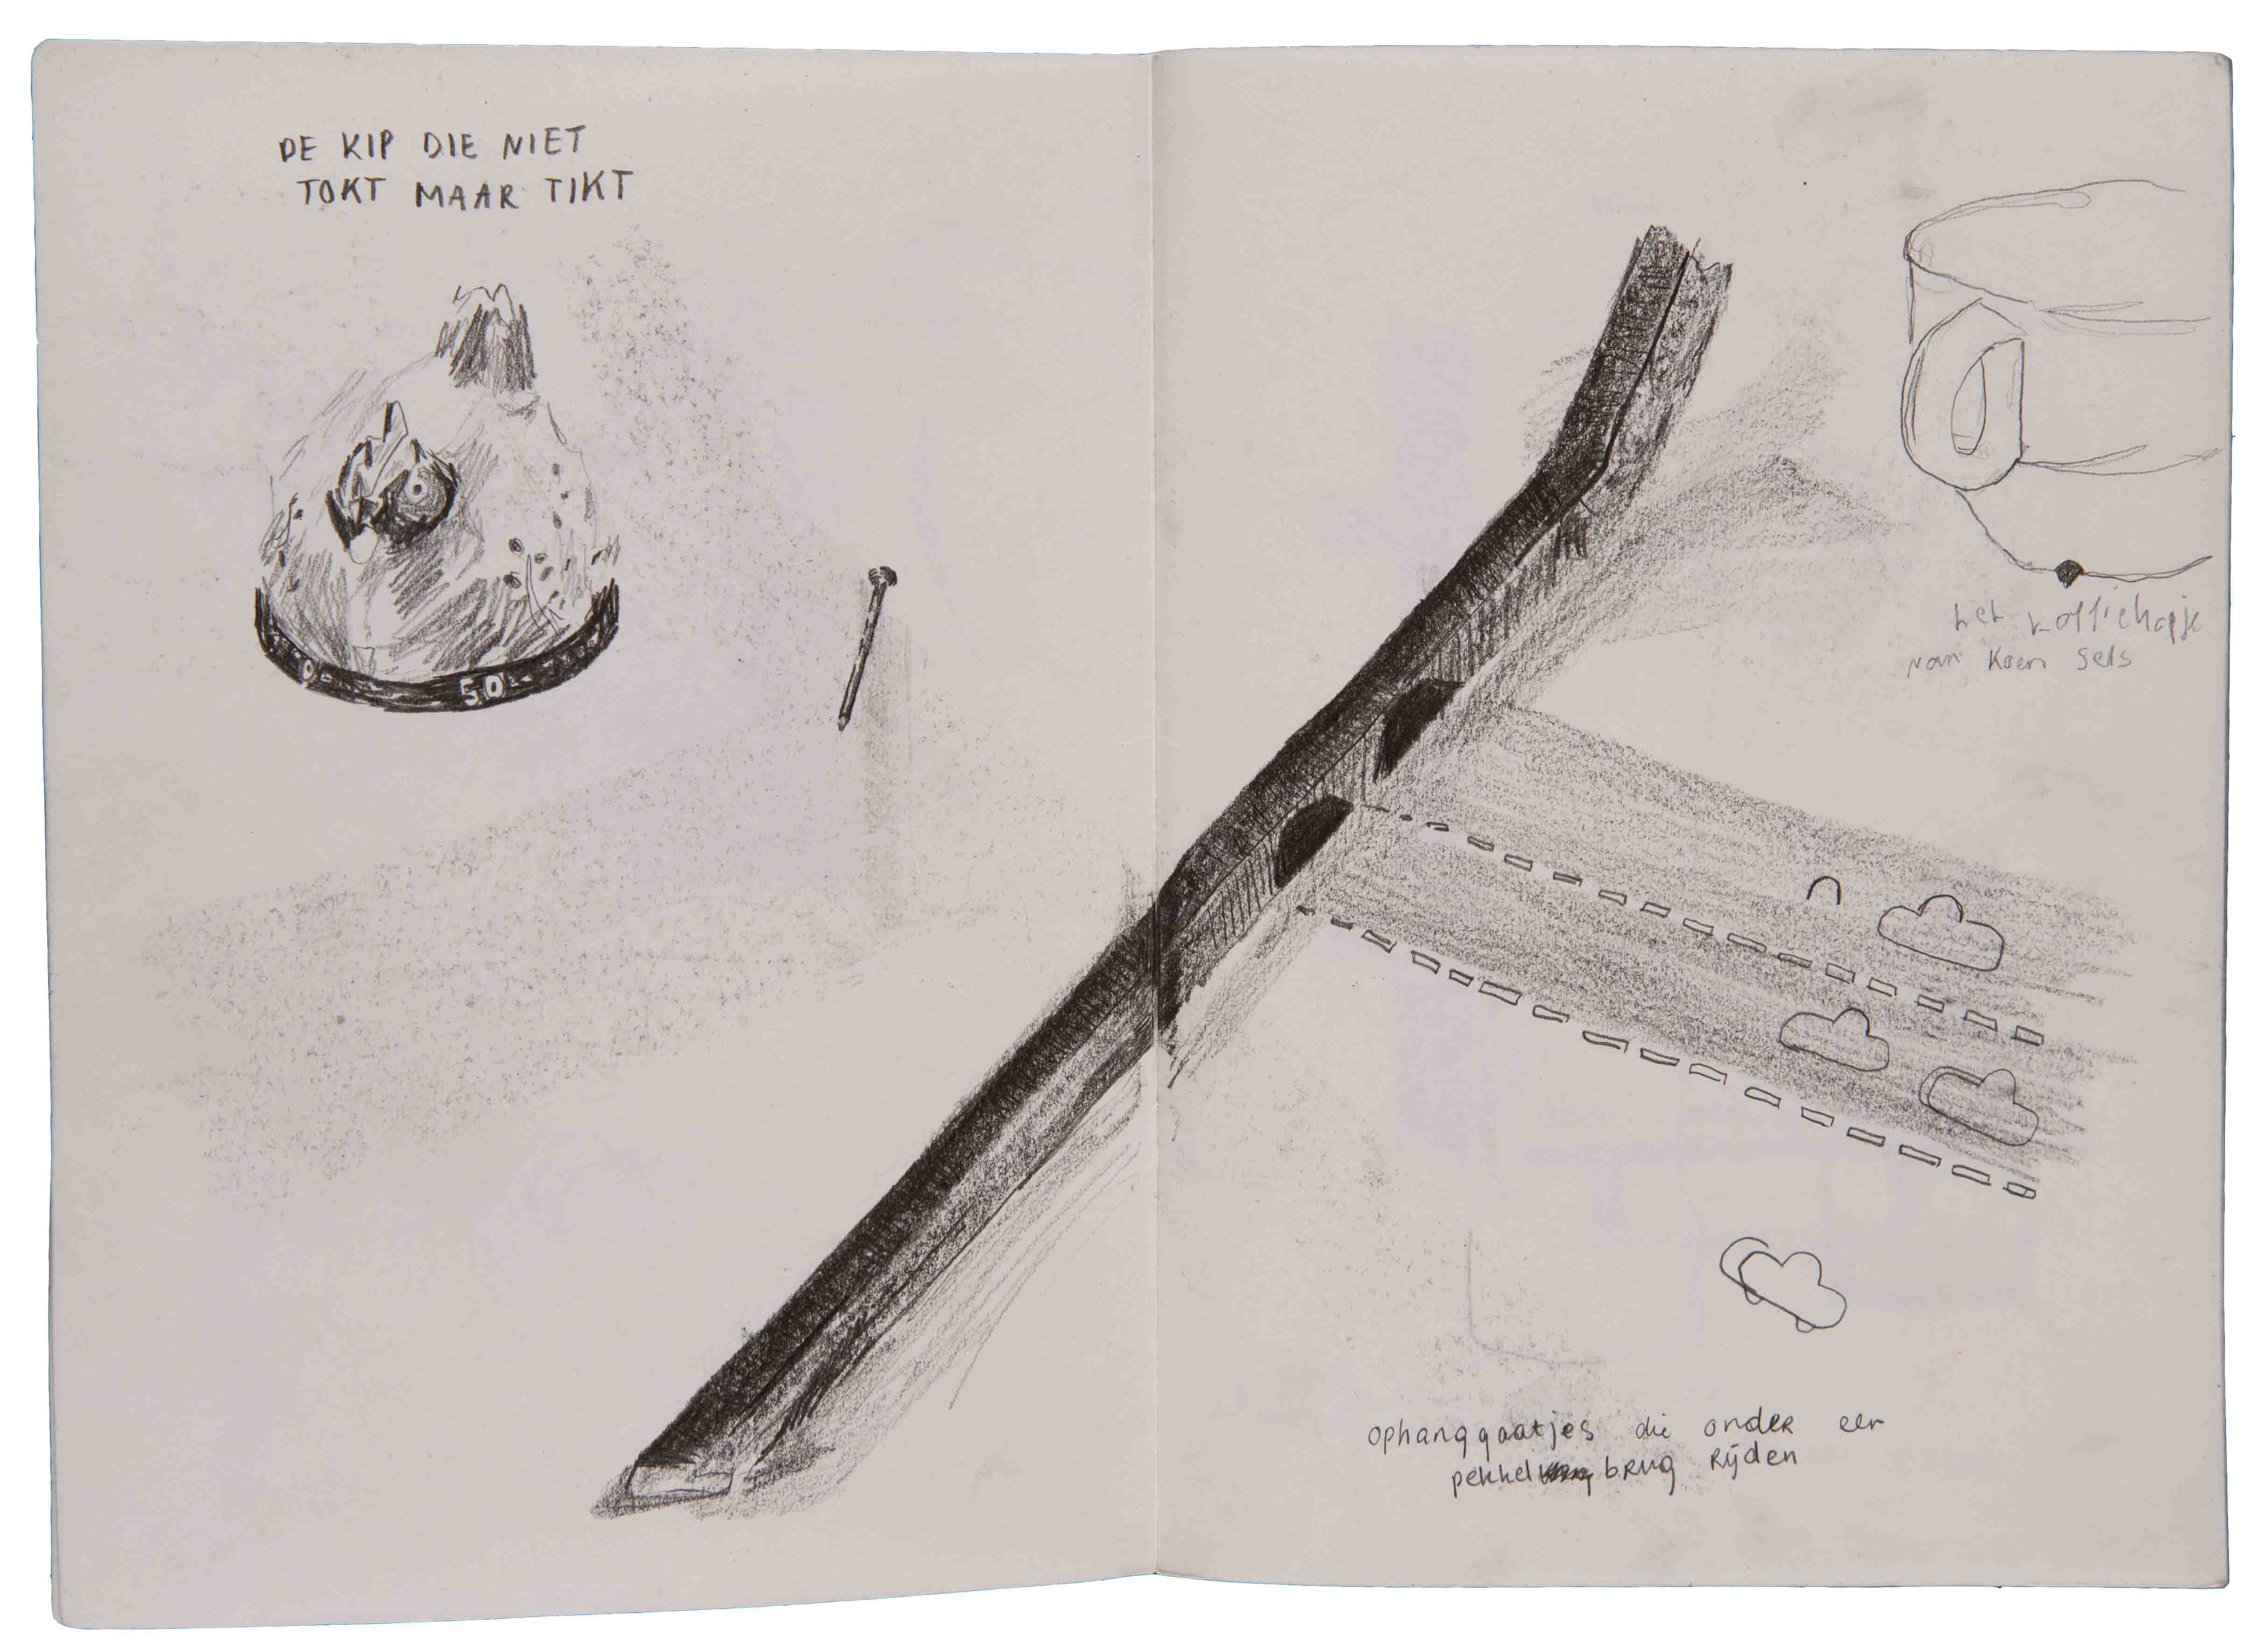 DE KIP DIE NIET
TOKT MAAR TIKT
0
50
het koffiekapje
van Koen Sels
ophanggaatjes die onder een
pekkel brug Rijden